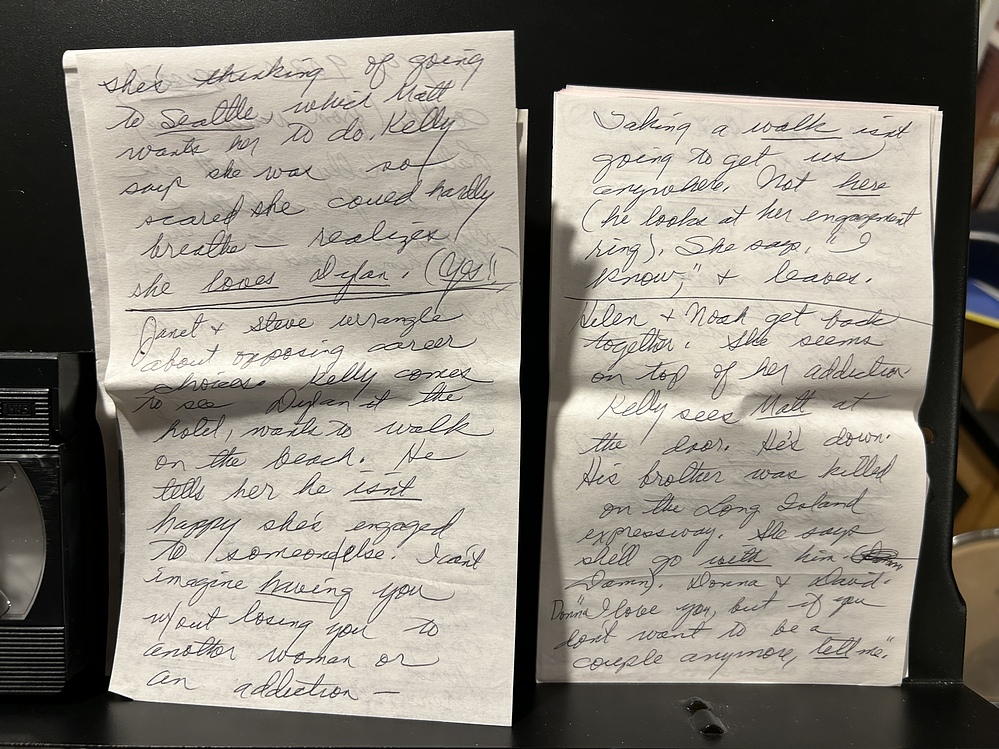 she's thinking of going
to Seattle, which Matt
wants her to do. Kelly
says she was so
scared she could hardly
breathe — realizes
she loves Dylan. (Yes!!
Janet + Steve wrangle
about opposing career
choices. Kelly comes
to see Dylan at the
hotel, wants to walk
on the beach. He
tells her he isn't
happy she's engaged
to someone else. I can't
imagine having you
w/out losing you to
another woman or
an addiction —
Taking a walk isn't
going to get us
anywhere. Not here
(he looks at her engagement
ring). She says, "I
know," + leaves.
Helen + Noah get back
together. She seems
on top of her addiction.
Kelly sees Matt at
the door. He's down.
His brother was killed
on the Long Island
expressway. She says
she'll go with him
Damn). Donna + David.
Donna "I love you, but if you
don't want to be a
couple anymore, tell me."